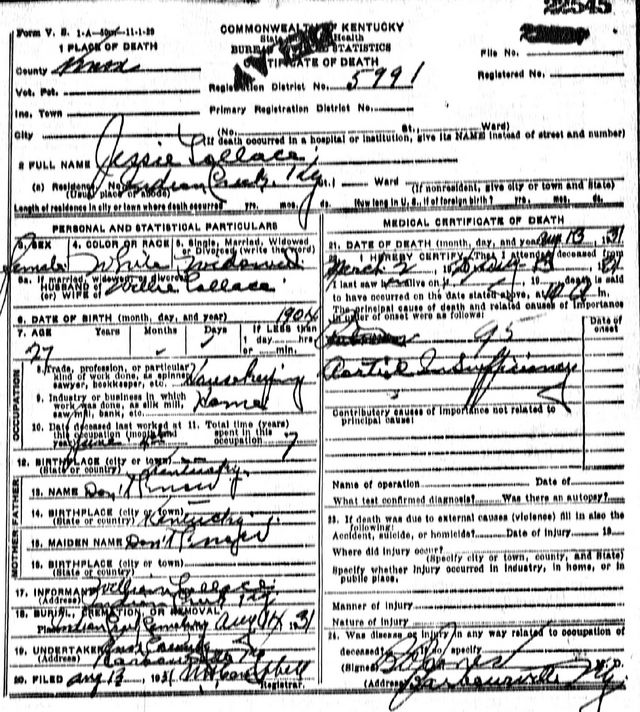 22545
Form V. S. 1-A-50m-11-1-29
COMMONWEALTH OF KENTUCKY
State Health
BUREAU STATISTICS
CERTIFICATE OF DEATH
1 PLACE OF DEATH
County Knox
File No.
Registration District No. 5991
Registered No.
Vot. Pct.
Inc. Town
Primary Registration District No.
City
(No. St., Ward)
(If death occurred in a hospital or institution, give its NAME instead of street and number)
2 FULL NAME Jessie
(a) Residence, No. Indian Creek, Ky St., Ward
(Usual place of abode) (If nonresident, give city or town and State)
Length of residence in city or town where death occurred yrs. mos. ds. How long in U. S., if of foreign birth? yrs. mos. ds.
PERSONAL AND STATISTICAL PARTICULARS
3. SEX
4. COLOR OR RACE
5. Single, Married, Widowed or Divorced (write the word)
Female White Widowed
5a. If married, widowed, or divorced
HUSBAND of
(or) WIFE of Willie
6. DATE OF BIRTH (month, day, and year) 1904
7. AGE Years Months Days If LESS than
1 day hrs.
or min.
27
OCCUPATION
8. Trade, profession, or particular
kind of work done, as spinner,
sawyer, bookkeeper, etc. Housekeeping
9. Industry or business in which
work was done, as silk mill,
saw mill, bank, etc. Home
10. Date deceased last worked at
this occupation (month and
year) June
11. Total time (years)
spent in this
occupation 7
12. BIRTHPLACE (city or town)
(State or country) Kentucky
FATHER
13. NAME Don't Know
14. BIRTHPLACE (city or town)
(State or country) Kentucky
MOTHER
15. MAIDEN NAME Don't Know
16. BIRTHPLACE (city or town)
(State or country)
17. INFORMANT William
(Address) Ky
18. BURIAL, CREMATION, OR REMOVAL
Place Indian Creek Cemetery Aug 14 1931
19. UNDERTAKER
(Address) Barbourville Ky
20. FILED Aug 1931
Registrar.
MEDICAL CERTIFICATE OF DEATH
21. DATE OF DEATH (month, day, and year) Aug 13, 31
22. I HEREBY CERTIFY, That I attended deceased from
March 2 Aug 13 31
I last saw alive on death is said
to have occurred on the date stated above, at m.
The principal cause of death and related causes of importance
in order of onset were as follows:
Date of onset
95
Aortic Insufficiency
Contributory causes of importance not related to
principal cause:
Name of operation Date of
What test confirmed diagnosis? Was there an autopsy?
23. If death was due to external causes (violence) fill in also the
following:
Accident, suicide, or homicide? Date of injury 19
Where did injury occur?
(Specify city or town, county, and State)
Specify whether injury occurred in industry, in home, or in
public place.
Manner of injury
Nature of injury
24. Was disease or injury in any way related to occupation of
deceased? If so, specify
(Signed) Jones M. D.
(Address) Barbourville Ky.